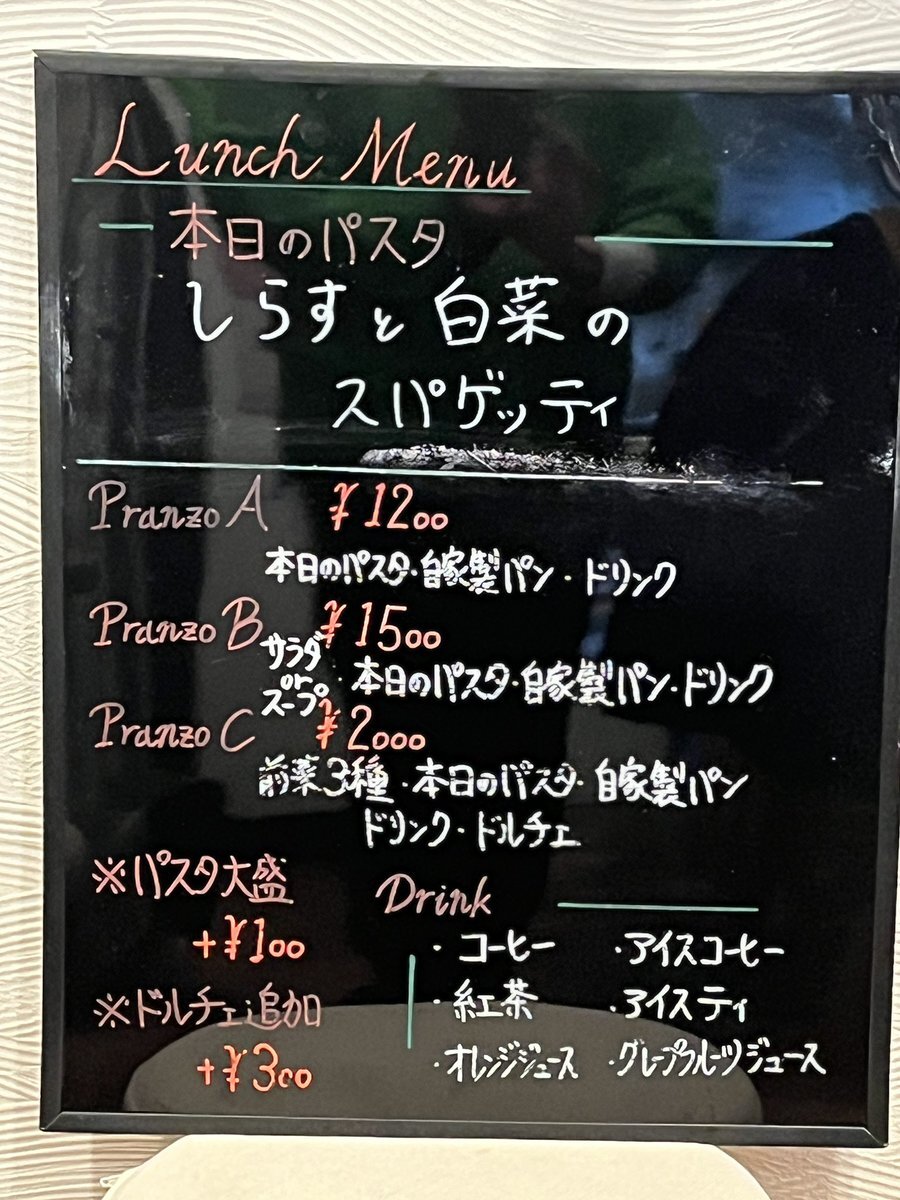 Lunch Menu
本日のパスタ
しらすと白菜の
スパゲッティ
Pranzo A ¥1200
本日のパスタ・自家製パン・ドリンク
Pranzo B ¥1500
サラダ
or
スープ
・本日のパスタ・自家製パン・ドリンク
Pranzo C ¥2000
前菜3種・本日のパスタ・自家製パン
ドリンク・ドルチェ
※パスタ大盛
+¥100
※ドルチェ追加
+¥300
Drink
・コーヒー ・アイスコーヒー
・紅茶 ・アイスティ
・オレンジジュース ・グレープフルーツジュース